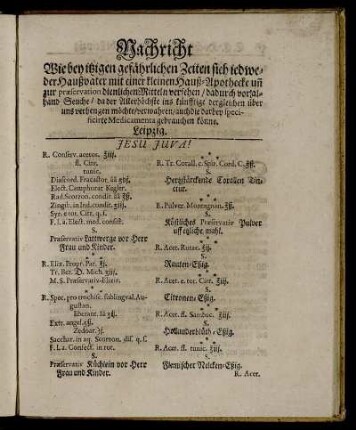 Nachricht
Wie bey itzigen gefährlichen Zeiten sich iedwe-
der Haußvater mit einer kleinen Hauß-Apothecke uñ
zur præservation dienlichen Mitteln versehen / dadurch vorfal-
hand Seuche / da der Allerhöchste ins künfftige dergleichen über
uns verhengen möchte / verwahren / auch die darbey speci-
ficirte Medicamenta gebrauchen könne.
Leipzig.
JESU JUVA!
R. Conserv. acetos.
fl. Citr.
tunic.
Diascord. Fracastor.
Elect. Camphorat Kegler.
Rad. Scorzon. condit.
Zingib. in Ind. condit.
Syr. e tot. Citr. q. s.
F. l. a. Elect. mod. consist.
S.
Præservativ Lattwerge vor Herr
Frau und Kinder.
R. Elix. Propr. Par.
Tr. Bez. D. Mich.
M. S. Præservativ-Elixir.
R. Spec. pro trochisc. sublingval. Au-
gustan.
Extr. angel.
Zedoar.
Sacchar. in aq. Scorzon. diss. q. s.
F. l. a. Confect. in rot.
S.
Præservativ Küchlein vor Herr
Frau und Kinder.
R. Tr. Corall. c. Spir. Cord. C.
S.
Hertzstärckende Corallen Tin-
ctur.
R. Pulver. Montagnan.
S.
Köstliches Præservativ Pulver
auff etzliche mahl.
R. Acet. Rutac.
S.
Rauten-Eßig.
R. Acet. e tot. Citr.
S.
Citronen-Eßig.
R. Acet. fl. Sambuc.
S.
Hollunderblüth-Eßig.
R. Acet. fl. tunic.
S.
Nelcken-Eßig.
R. Acet.